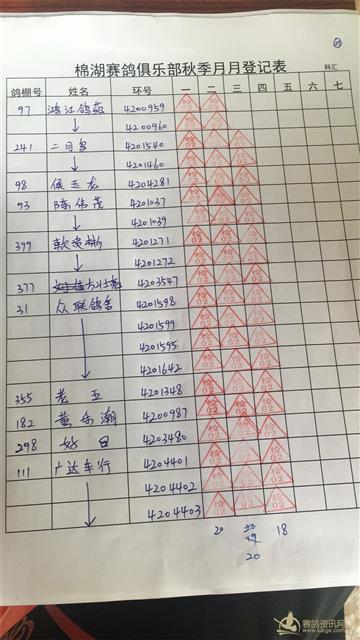 棉湖赛鸽俱乐部秋季月月登记表
科汇
鸽棚号 姓名 环号 一 二 三 四 五 六 七
97 鸿江鸽苑 4200959
↓ 4200960
241 二月多 4201540
↓ 4201460
98 侯玉龙 4204281
93 陈伟茂 4201037
↓ 4201039
399 4201271
↓ 4201272
377 4203547
31 众联鸽舍 4201598
4201599
4201595
↓ 4201642
355 老五 4201348
182 黄乐瀚 4200987
298 好日 4203480
111 广达车行 4204401
4204402
↓ 4204403
20 18
20
赛鸽资讯网
www.saige.com